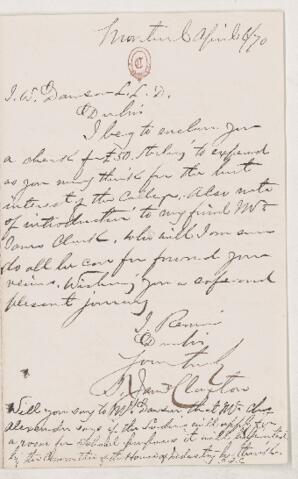 Montreal April 6/70
J. W. Dawson L.L.D.
Dr Sir
I beg to enclose you
a check for £50 Sterling to expend
as you may think for the best
interest of the College. Also note
of introduction to my friend Mr
James Clark, who will I am sure
do all he can for
Wishing you a safe and
pleasant journey
I Remain
Dr Sir
Yours truly
J. Clapton
Will you say to Mrs Dawson that Mr
Alexander says if the Ladies will apply for
a room for school purposes it will be granted
by the Committee of the House of Industry